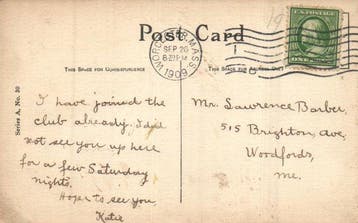 Post Card
WORCESTER, MASS.
SEP 20
1909
THIS SPACE FOR CORRESPONDENCE
THIS SPACE FOR ADDRESS ONLY
Series A, No. 30
I have joined the
club already. I did
not see you up here
for a few Saturday
nights.
Hope to see you,
Katie
Mr. Lawrence Barber,
515 Brighton ave,
Woodfords,
Me.